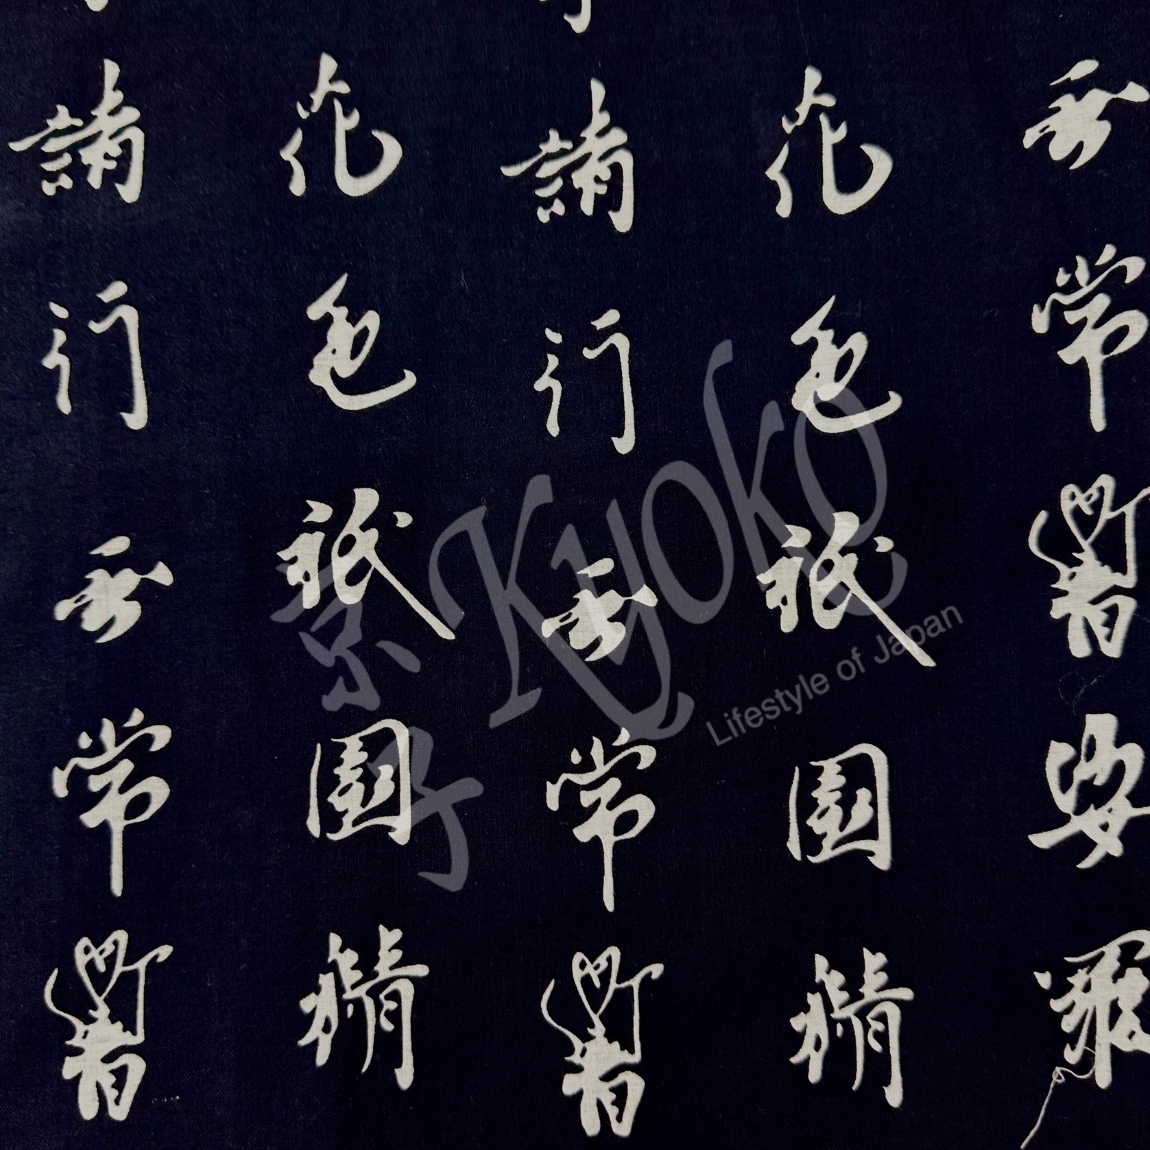 無常響娑羅
花色祇園精
諸行無常響
花色祇園精
諸行無常響
京子
Kyoko
Lifestyle of Japan